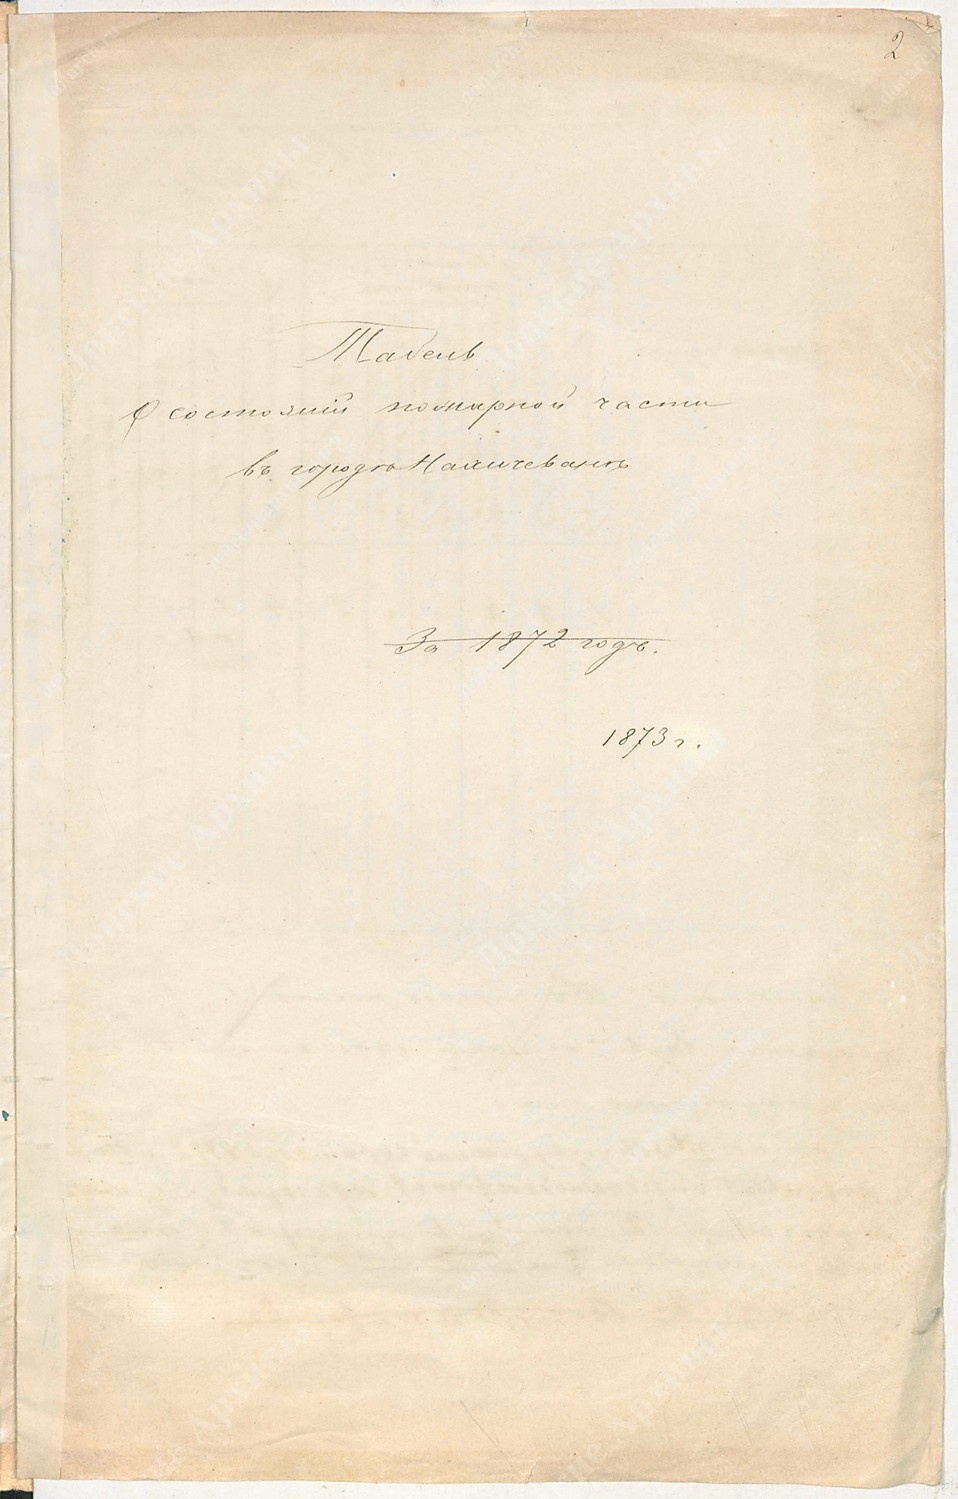 2
Табель
О состояніи пожарной части
въ городѣ Нахичевань
За 1872 годъ.
1873 г.